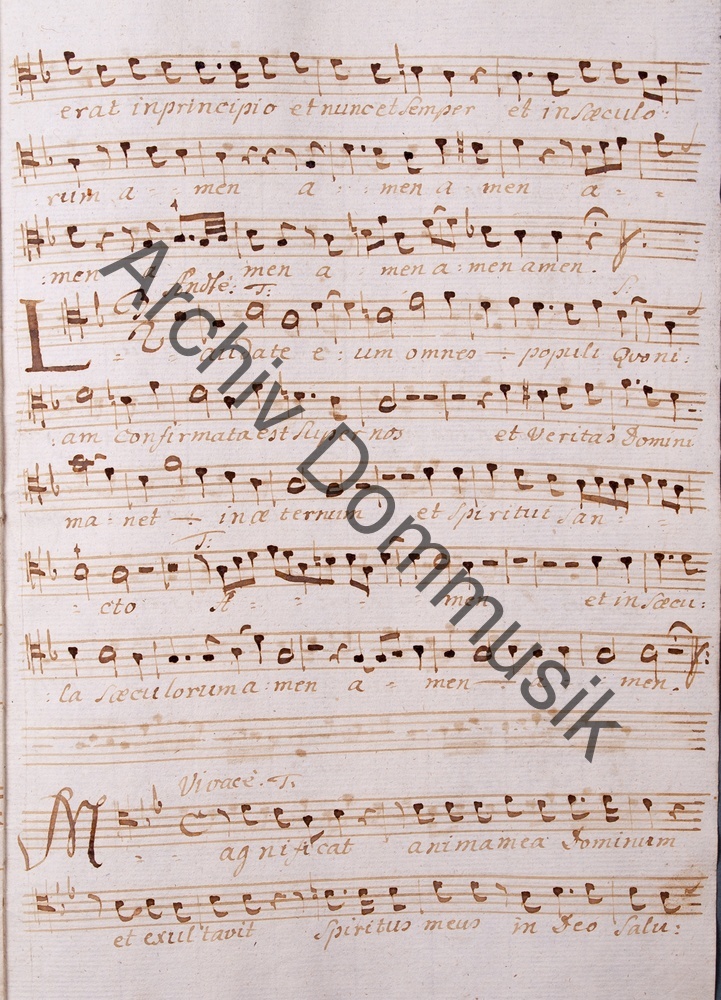 erat in principio et nunc et semper et in sæculo:
:rum a - men a - men a men a - -
:men a men a men a: men amen.
T. S.
L - audate e: um omnes ÷ populi Quoni:
:am Confirmata est super nos et Veritas Domini
ma: net ÷ in æternum et Spiritui San - -
T:
- - cto A - - - men et in Sæcu:
:la sæculorum a: men a - men ÷ a - men.
Vivace. T.
M - agnificat anima mea Dominum
et exultavit Spiritus meus in Deo Salu:
Archiv Dommusik